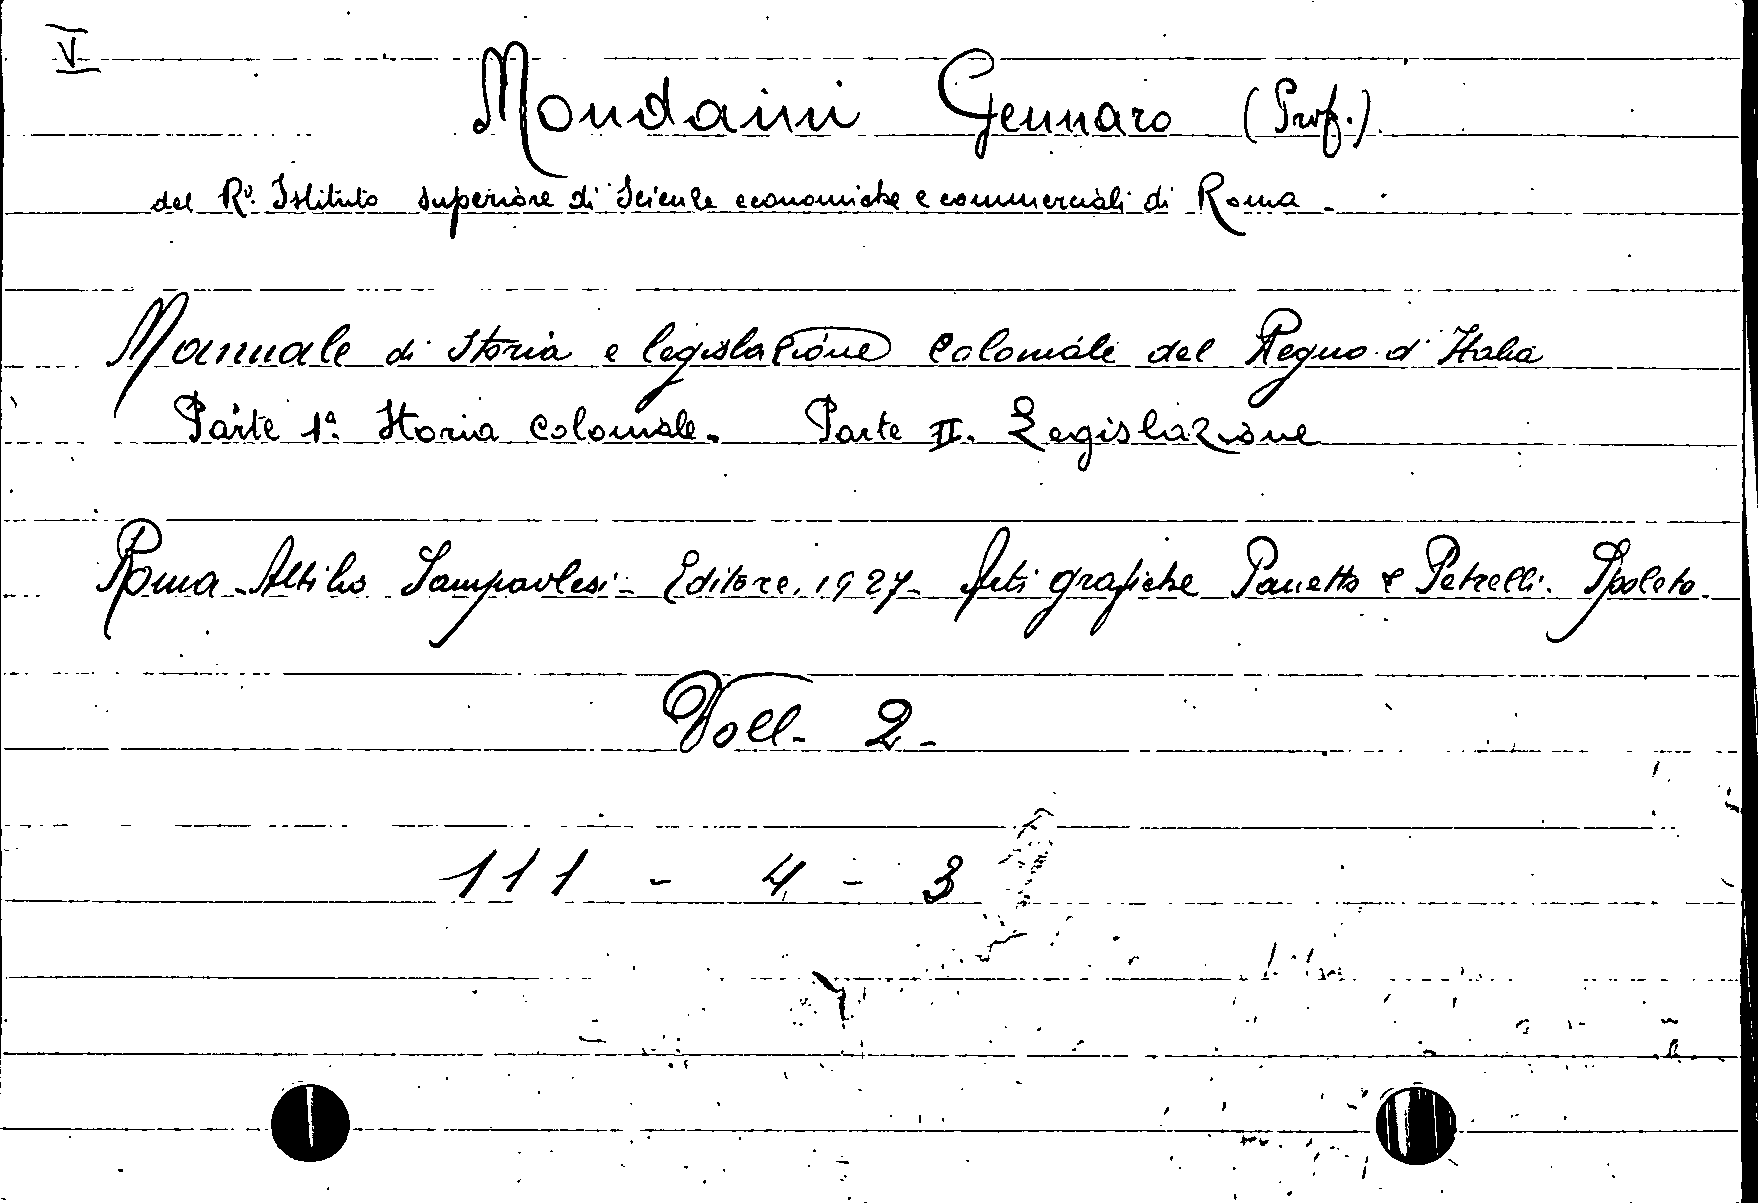 V
Mondaini Gennaro (Prof.)
del R°. Istituto superiore di Scienze economiche e commerciali di Roma -
Manuale di Storia e legislazione coloniale del Regno d'Italia
Parte 1ª. Storia coloniale. Parte II. Legislazione
Roma - Attilio Sampaolesi - Editore. 1927 - Arti grafiche Panetto e Petrelli. Spoleto.
Voll. 2 -
111 - 4 - 3